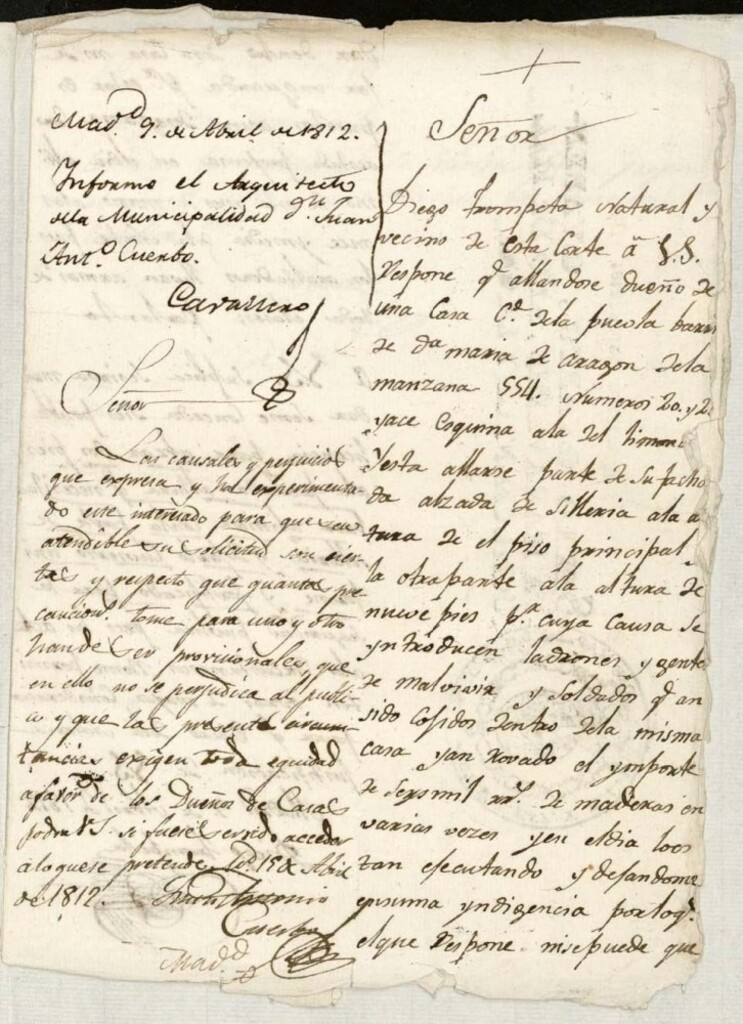 Mad.d 9. de Abril de 1812.
Informe el Arquitecto
dela Municipalidad Dn. Juan
Ant.o Cuerbo.
Cavallero
Señor
Las causales y perjuicios
que expresa y ha experimenta-
do este interesado para que sea
atendible su solicitud son cier-
tas y respecto que quantas pre
cauciones tome para uno y otro
han de ser provisionales, que
en ello no se perjudica al publi-
co y que las presentes circuns-
tancias exigen toda equidad
a favor de los Dueños de Casas
podra V.S. si fuere servido acceder
a lo que se pretende. Abril
de 1812. Juan Antonio
Cuerbo
Mad.d
Señor
Diego Trompeta Natural y
vecino de esta Corte a
Sespone q.e allandose dueño de
una Casa C.e dela puebla barrio
de da maria de aragon dela
manzana 554. Numeros 20. y 2
yace esquina ala del limon
yesta allarse parte de su facha
da alzada de silleria ala a
tura de el piso principal
la otra parte ala altura de
nuebe pies p.a cuya causa se
yntroducen ladrones y gente
de malvivir y soldados q.e an
sido cojidos dentro dela misma
casa yan rovado el ymporte
de seysmil rr.s de maderas en
varias vezes yen eldia loes
tan ejecutando y dejandome
ensuma yndigencia porloq.e
elque Sespone nisepuede que